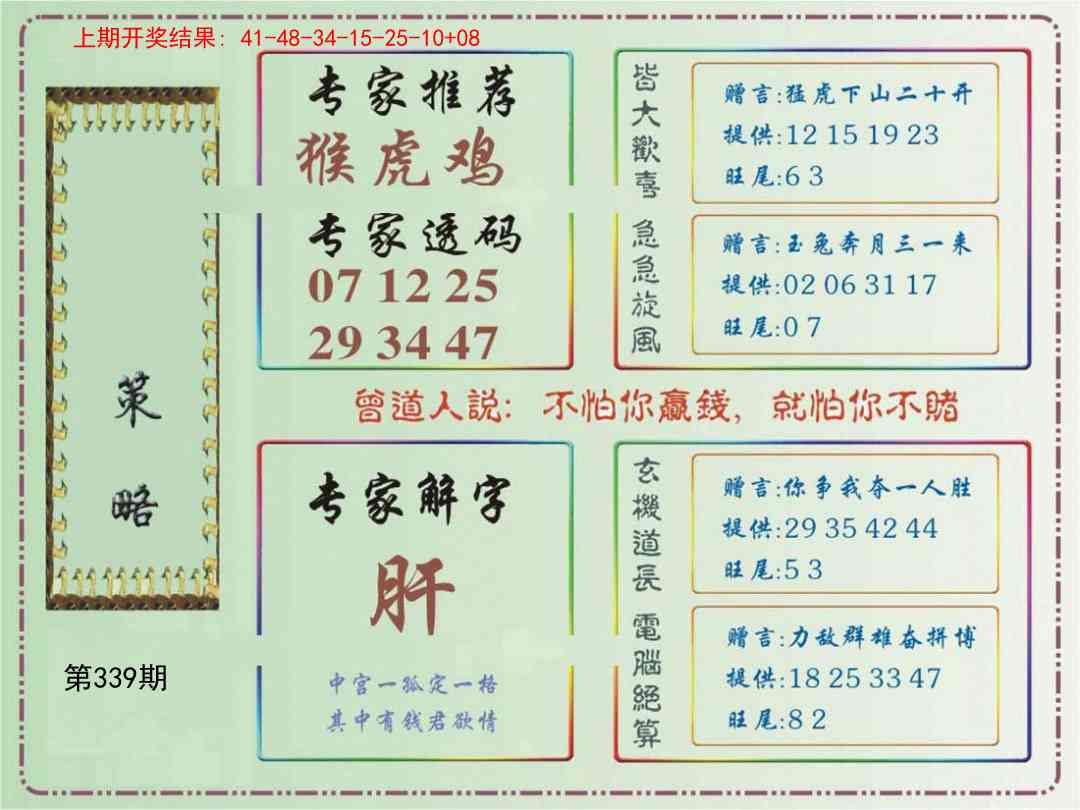 上期开奖结果: 41-48-34-15-25-10+08
策略
第339期
专家推荐
猴虎鸡
专家透码
07 12 25
29 34 47
皆大歡喜
赠言:猛虎下山二十开
提供:12 15 19 23
旺尾:6 3
急急旋風
赠言:玉兔奔月三一来
提供:02 06 31 17
旺尾:0 7
曾道人説: 不怕你贏錢, 就怕你不賭
专家解字
肝
中宫一孤定一格
其中有钱君欲情
玄機道長
赠言:你争我夺一人胜
提供:29 35 42 44
旺尾:5 3
電腦絕算
赠言:力敌群雄奋拼博
提供:18 25 33 47
旺尾:8 2